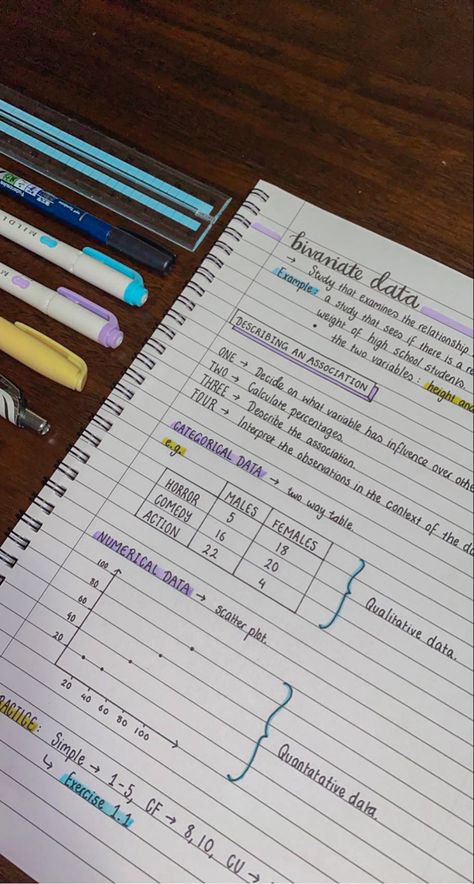 bivariate data
→ Study that examines the relationship
Example: a study that sees if there is a re
weight of high school students.
• the two variables: height and
DESCRIBING AN ASSOCIATION
ONE → Decide on what variable has influence over othe
TWO → Calculate percentages
THREE → Describe the association
FOUR → Interpret the observations in the context of the da
CATEGORICAL DATA → two way table.
e.g.
MALES FEMALES
HORROR 5 18
COMEDY 16 20
ACTION 22 4
Qualitative data.
NUMERICAL DATA → scatter plot.
100
80
60
40
20
20 40 60 80 100
Quantatative data.
RACTICE: Simple → 1-5, CF → 8,10, CU →
↳ Exercise 1.1